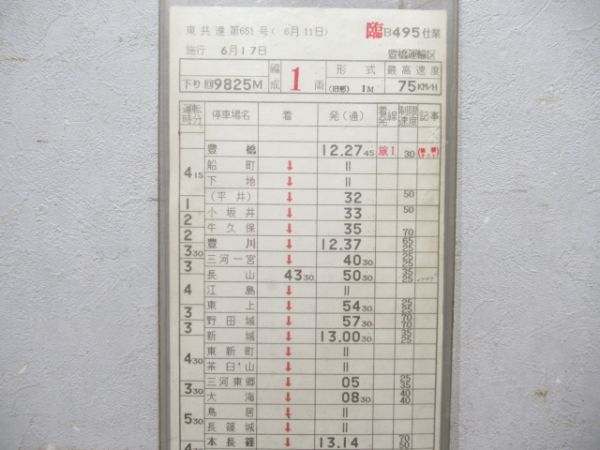 東共達第651号(6月11日) 臨B495仕業
施行 6月17日 豊橋運輸区
下り 回9825M 編成 1 両 形式 (旧形) 1M 最高速度 75KM/H
運転時分 停車場名 着 発(通) 着発線 制限速度 記事
豊橋 ↓ 12.27 45 旅1 30
4 15 船町 ↓ 〃
下地 ↓ 〃
(平井) ↓ 32 50
1 小坂井 ↓ 33 50
2 牛久保 ↓ 35 70
2 豊川 ↓ 12.37 65 25
3 30 三河一宮 ↓ 40 30 25
3 長山 43 30 50 30 35 25
4 江島 ↓ 〃
東上 ↓ 54 30 25
3 野田城 ↓ 57 30 70
3 新城 ↓ 13.00 30 35 25
東新町 ↓ 〃
4 30 茶臼山 ↓ 〃
三河東郷 ↓ 05 25
3 30 大海 ↓ 08 30 40 40
鳥居 ↓ 〃
5 30 長篠城 ↓ 〃
本長篠 ↓ 13.14 70